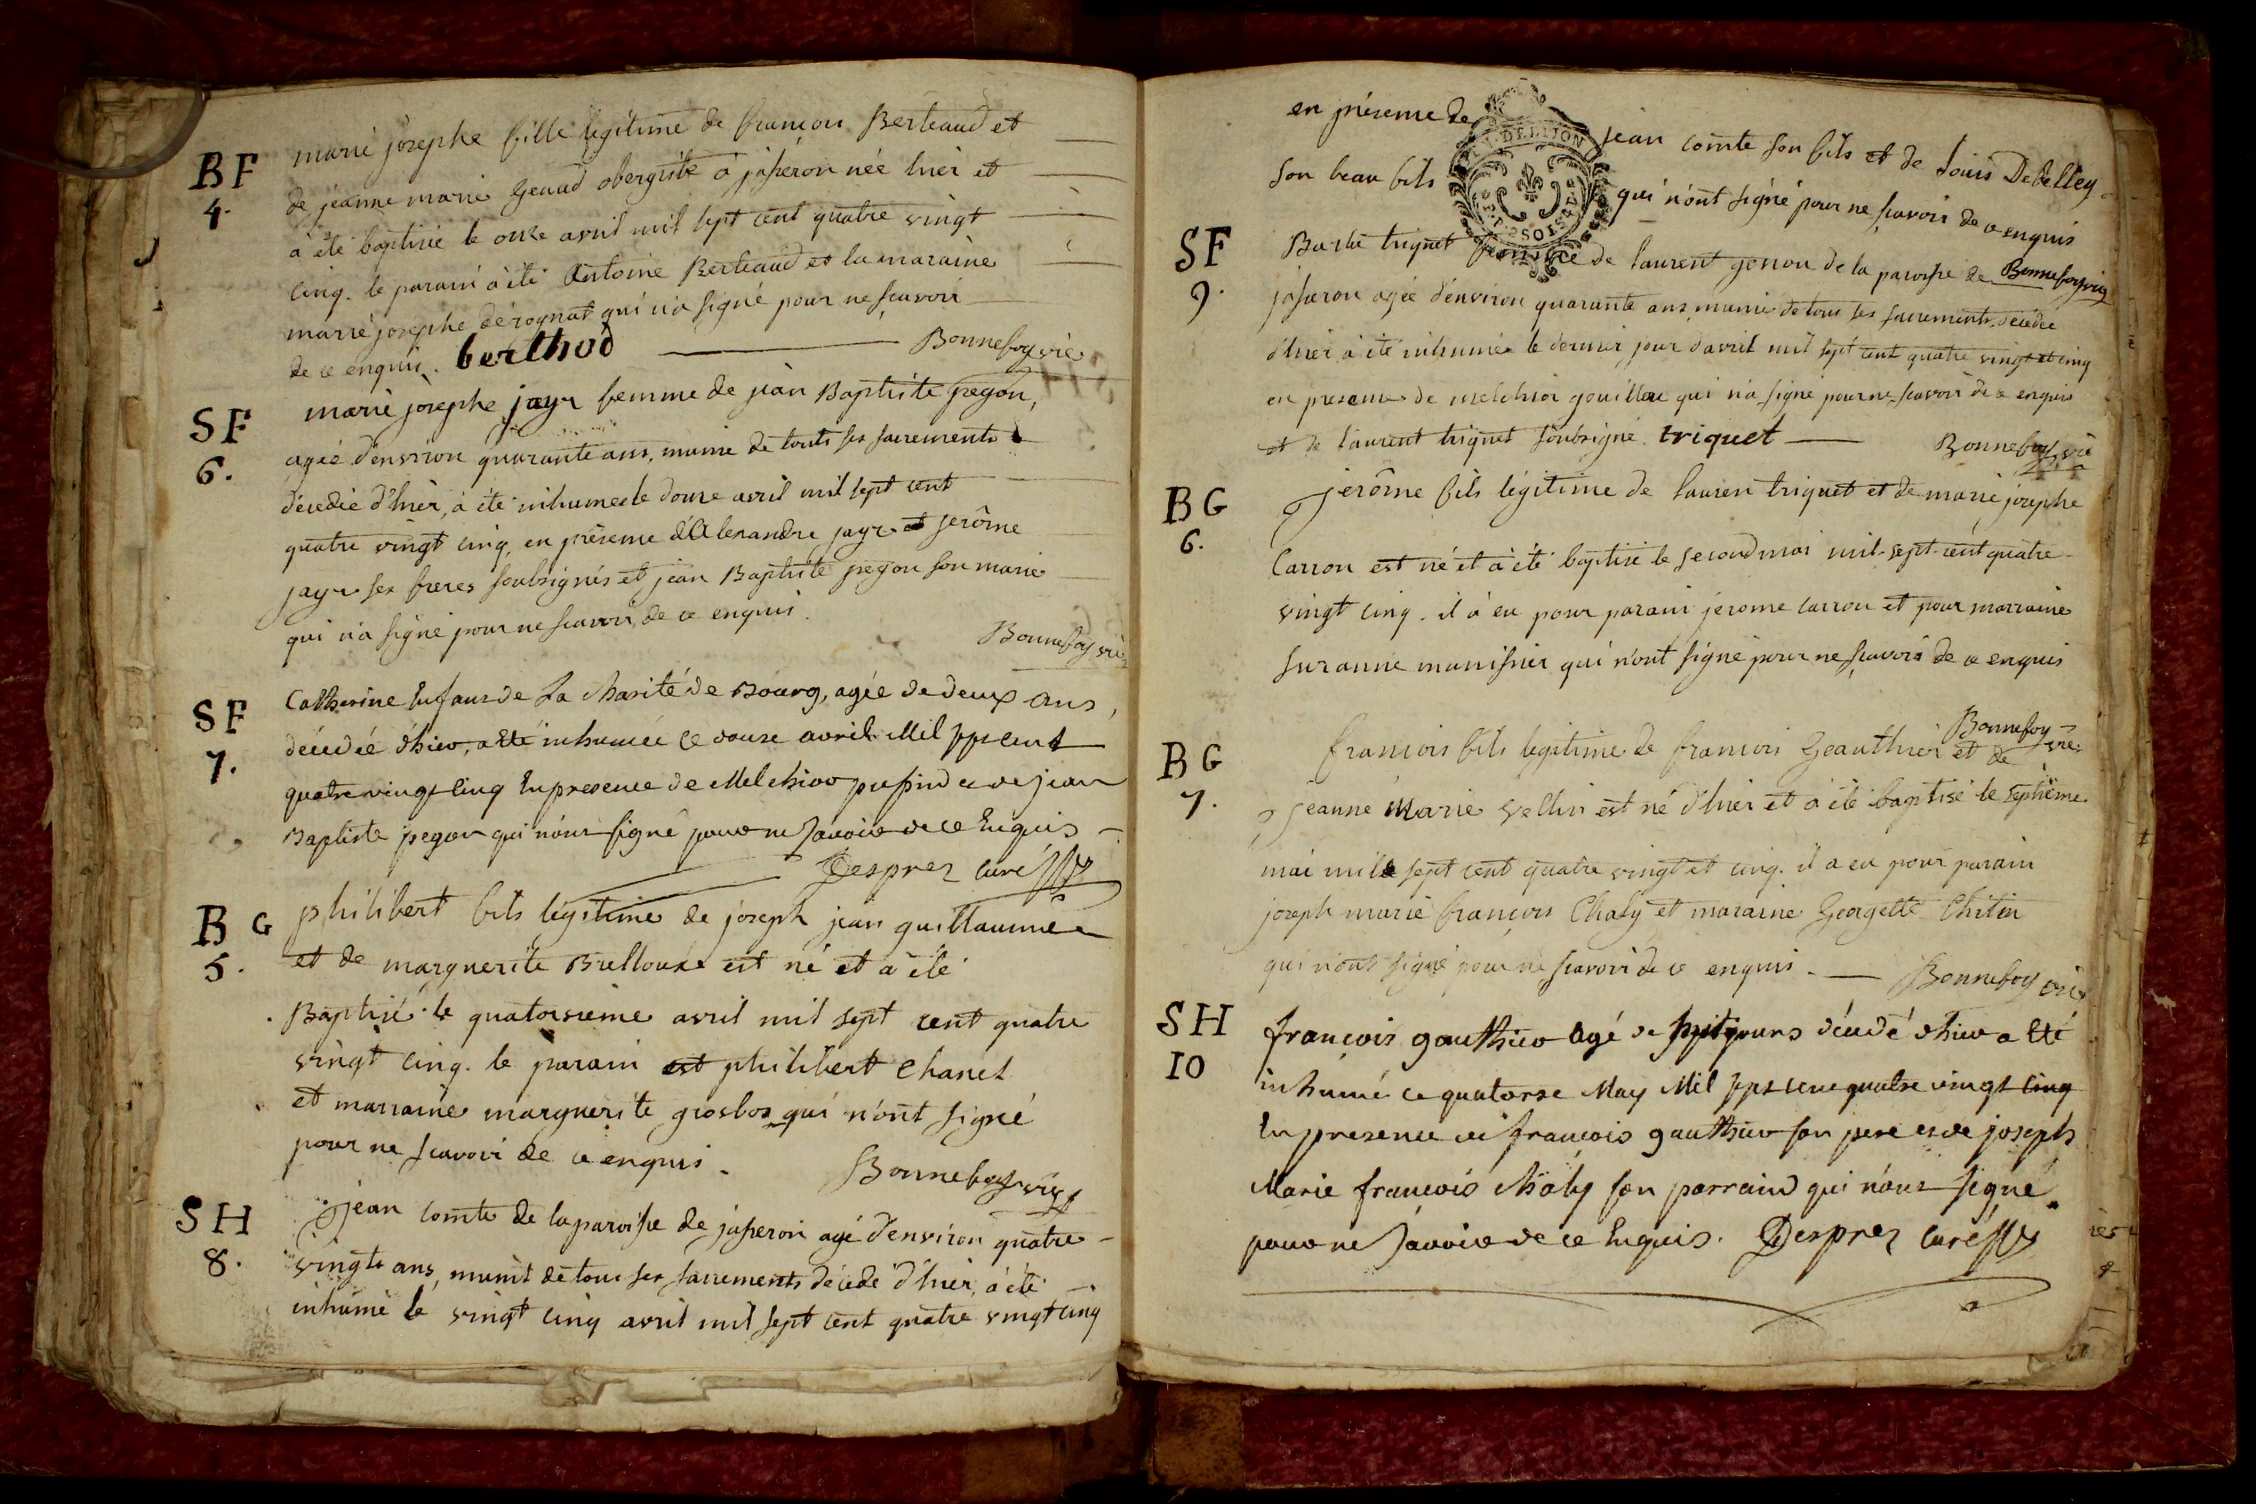 BF
4.
marie josephe fille legitime de francois Berteaud et
de jeanne marie Geaud obergiste à jasseron née hier et
à été baptisée le onze avril mil sept cent quatre vingt
cinq. le parain à été Antoine Berteaud et la maraine
marie josephe derognat qui n'a signé pour ne scavoir
de ce enquis. berthod Bonnefoy vic
SF
6.
marie josephe jayr femme de jean Baptiste pegon,
agée d'environ quarante ans, munie de touts ses sacrements
décedée d'hier, à été inhumée le douze avril mil sept cent
quatre vingt cinq, en présence d'Alexandre jayr et jerôme
jayr ses freres soubsignés et jean Baptiste pegon son marie
qui n'a signé pour ne scavoir de ce enquis.
Bonnefoy vic
SF
7.
Catherine Enfant de La Charité de Bourg, agée de deux ans,
décedée d'hier, a été inhumée ce douze avril Mil sept cent
quatre vingt cinq En presence de Melchior et de jean
Baptiste pegon qui n'ont signé pour ne savoir de ce Enquis
Desprez curé
BG
5.
philibert fils légitime de joseph jean guillaume
et de marguerite Brelloux est né et a été
Baptisé le quatorsieme avril mil sept cent quatre
vingt cinq. le parain est philibert Chanel
et marraine marguerite grosbos qui n'ont signé
pour ne scavoir de ce enquis.
Bonnefoy vic
SH
8.
jean comte de la paroisse de jasseron agé d'environ quatre
vingts ans, munit de tous ses sacrements décedé d'hier, à été
inhumé le vingt cinq avril mil sept cent quatre vingt cinq
en présence de jean comte son fils et de Louis Debelley
son beau fils qui n'ont signé pour ne scavoir de ce enquis
Bonnefoy vic
SF
9.
triquet femme de laurent genou de la paroisse de
jasseron agée d'environ quarante ans, munie de tous ses sacrements, décedée
d'hier à été inhumée le dernier jour d'avril mil sept cent quatre vingt et cinq
en presence de melchior gouilloux qui n'a signé pour ne scavoir de ce enquis
et de laurent triquet soubsigné. triquet Bonnefoy vic
BG
6.
jerôme fils légitime de lauren triquet et de marie josephe
Carron est né et à été baptisé le second mai mil sept cent quatre
vingt cinq. il à eu pour parain jerome carron et pour marraine
suzanne manissier qui n'ont signé pour ne scavoir de ce enquis
Bonnefoy vic
BG
7.
francois fils legitime de francois Geauthier et de
jeanne Marie Vellin est né d'hier et à été baptisé le septieme
mai mile sept cent quatre vingt et cinq. il a eu pour parain
joseph marie françois Chaty et maraine Georgette
qui n'ont signé pour ne scavoir de ce enquis. Bonnefoy vic
SH
10
françois gauthier agé de sept jours décédé d'hier a été
inhumé ce quatorze May Mil sept cent quatre vingt cinq
En presence de françois gauthier son pere et de joseph
Marie françois Chaty son parrain qui n'ont signé
pour ne savoir de ce Enquis. Desprez curé